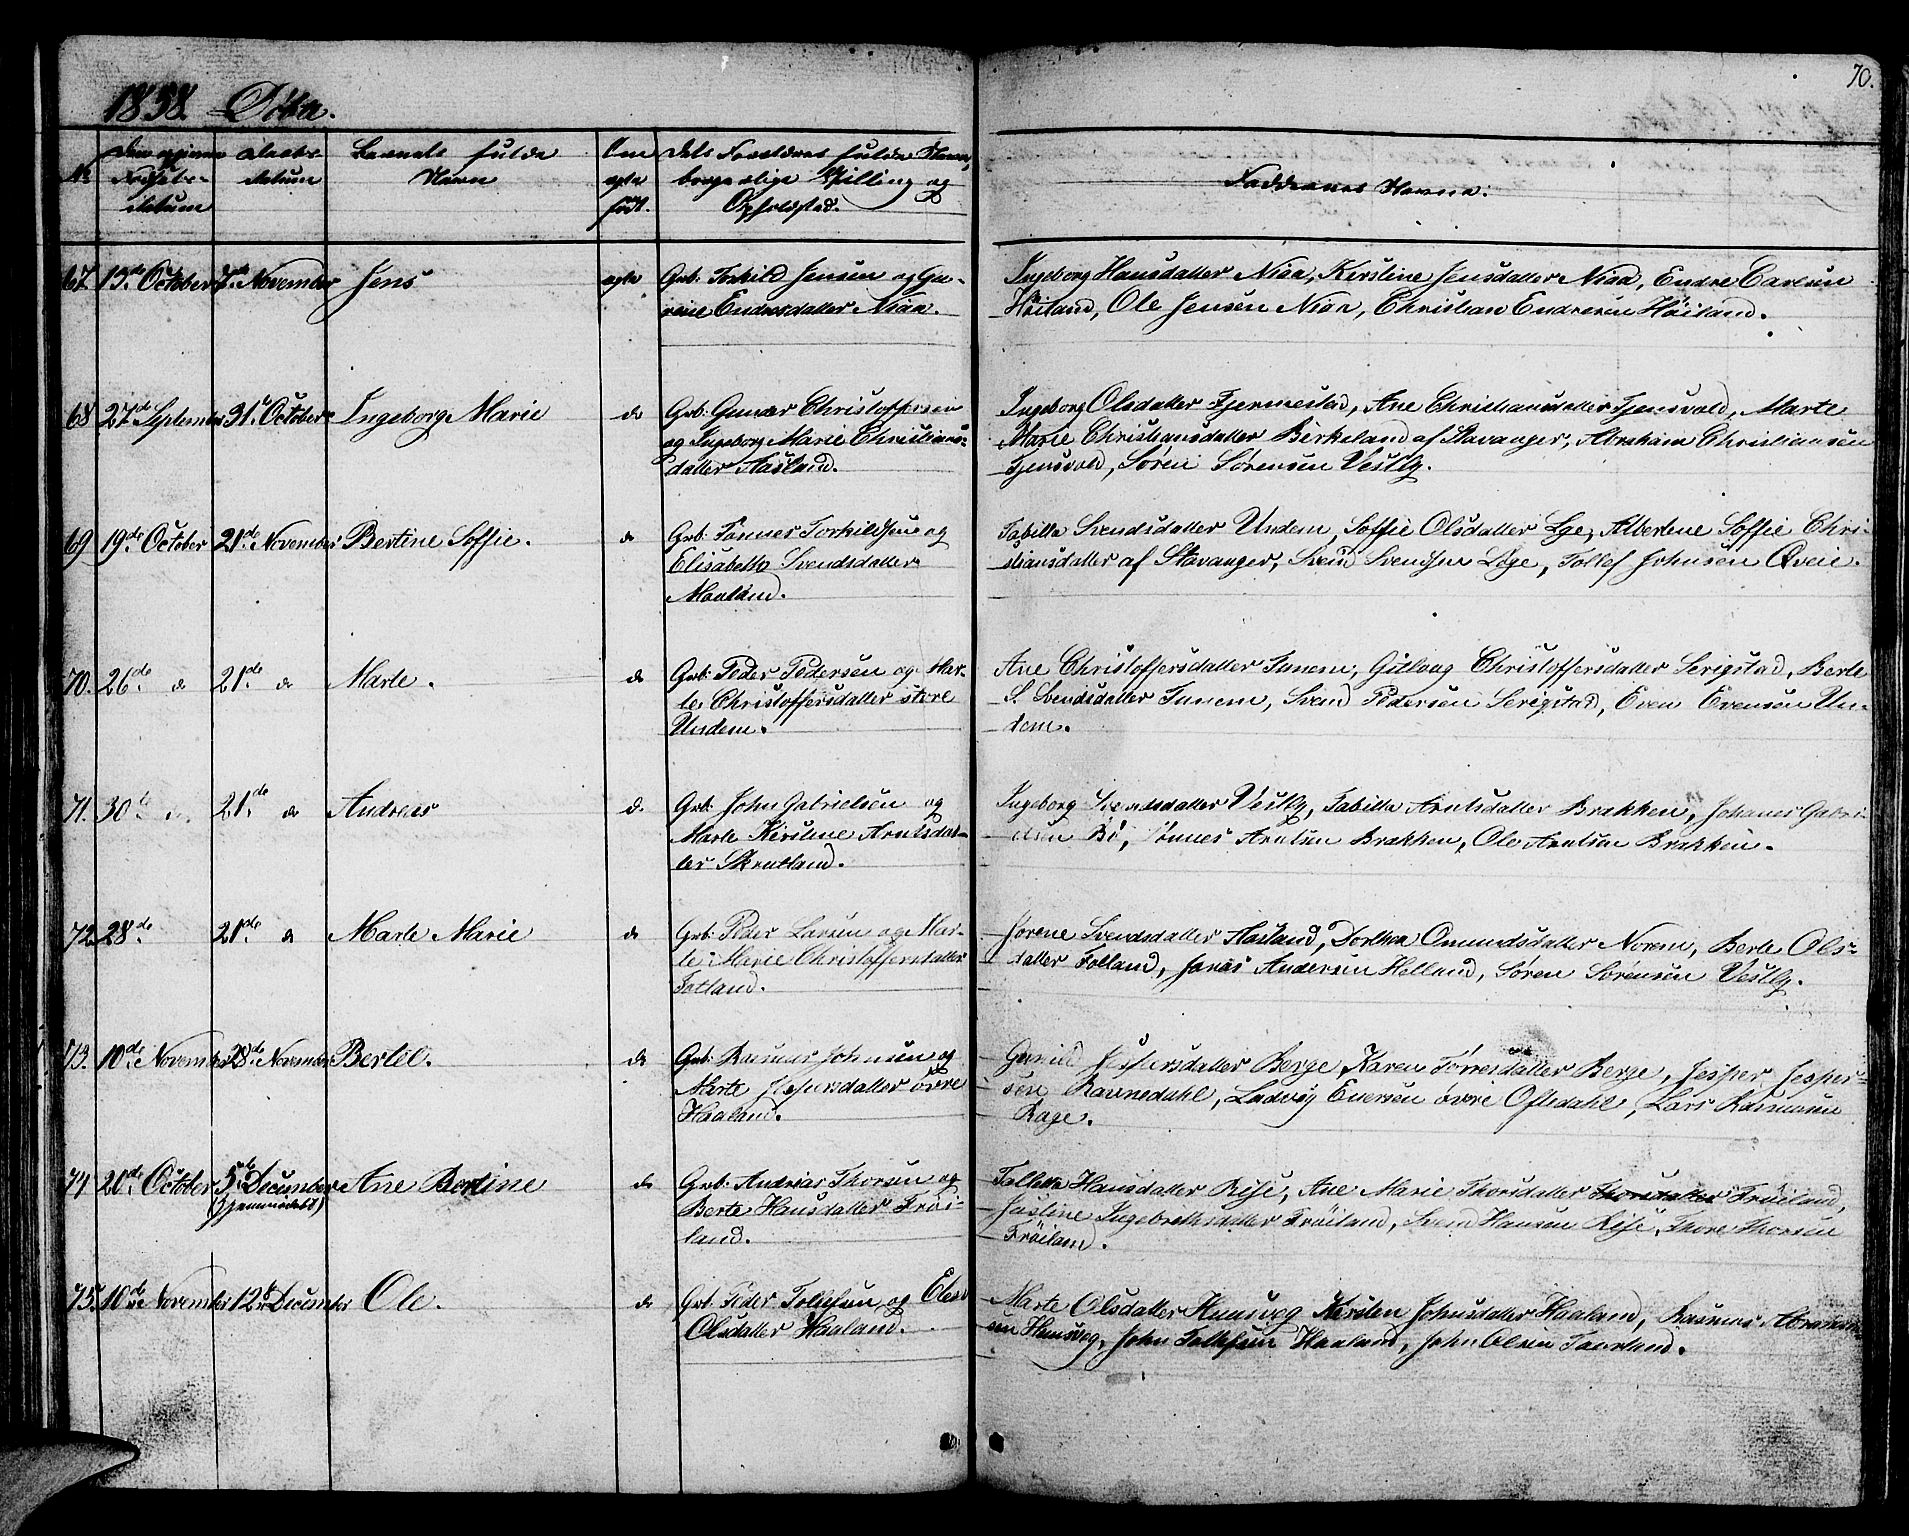 70.
1858. Döbte.
No
Den opgivne Fødsels-datum
Daabs-datum
Barnets fulde Navn
Om ægte født.
Dets Forældres fulde Navne, borgerlige Stilling og Opholdssted.
Faddernes Navne.
67. 15de October 7de November Jens
ægte
Grb. Torkild Jensen og Gu-
rine Endresdatter Niaa.
Ingeborg Hansdatter Niaa, Kirstine Jensdatter Niaa, Endre Carlsen
Høiland, Ole Jensen Niaa, Christian Endresen Høiland.
68 27de September 31te October Ingeborg Marie
do
Grb. Gunder Christoffersen
og Ingeborg Marie Christians-
datter Aasland.
Ingeborg Olsdatter Tjermestad, Ane Christiansdatter Tjensvold, Marte
Marie Christiansdatter Birkeland af Stavanger, Abraham Christiansen
Tjensvold, Søren Sørensen Vestly.
69 19de October 21de November Bertine Soffie.
do
Grb. Tønnes Torkildsen og
Elisabeth Svendsdatter
Maaland.
Tabitta Svendsdatter Undem, Soffie Olsdatter Lye, Albertine Soffie Chri-
stiansdatter af Stavanger, Svend Svendsen Lye, Tollef Johnsen Qveie.
70. 26de do 21de do Marte.
do
Grb. Peder Pedersen og Mar-
te Christoffersdatter store
Undem.
Ane Christoffersdatter Tunem, Gitlaug Christoffersdatter Serigstad, Berte
S. Svendsdatter Tunem, Svend Pedersen Serigstad, Even Evensen Un-
dem.
71. 30te do. 21de do Andreas
do.
Grb. John Gabrielsen og
Marte Kirstine Arntsdat-
ter Skrutland.
Ingeborg Svendsdatter Vestly, Tabitta Arntsdatter Brakken, Johanes Gabri-
elsen Bø, Tønnes Arntsen Brakken, Ole Arntsen Brakken.
72. 28de 21de do Marte Marie
do
Grb. Peder Larsen og Mar-
te Marie Christoffersdatter
Fotland.
Sørene Svendsdatter Aasland, Dorthea Omundsdatter Norem, Berte Ols-
datter Folland, Jonas Andersen Helland, Søren Sørensen Vestly.
73. 10de November 28de November Bertel.
do
Grb. Rasmus Johnsen og
Marte Jespersdatter øvre
Haaland.
Gunild Jespersdatter Berge, Karen Tørresdatter Berge, Jesper Jesper-
sen Ravnedahl, Ludvig Enersen øvre Oftedahl, Lars Rasmusen
Rage.
74 20de October 5te December Ane Bertine
(hjemmedøbt)
do
Grb. Andreas Thorsen og
Berte Hansdatter Frøi-
land.
Tolletta Hansdatter Rise, Ane Marie Thorsdatter Thorsdatter Frøiland,
Justine Ingebrethsdatter Frøiland, Svend Hansen Rise, Thore Thorsen
Frøiland.
75. 10de November 12te December Ole.
do
Grb. Peder Tollefsen og Elen
Olsdatter Haaland.
Marte Olsdatter Humsveg, Kirsten Johnsdatter Haaland, Rasmus Abraham-
sen Humsveg, John Tollefsen Haaland, John Olsen Taarland.